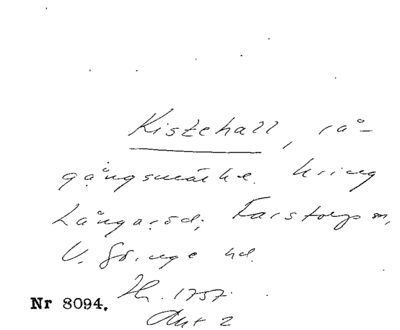 Kistehall, rå-
gångsmärke. kring
Långaröd; Farstorps sn,
V. Göinge hd.
Nr 8094. Lh. 1757.
Akt 2